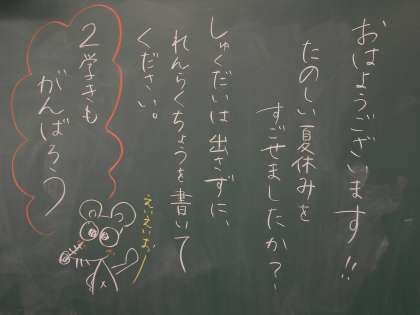 おはようございます!!
たのしい夏休みを
すごせましたか?
しゅくだいは出さずに、
れんらくちょうを書いて
ください。
2学きも
がんばろう
えいえいお!